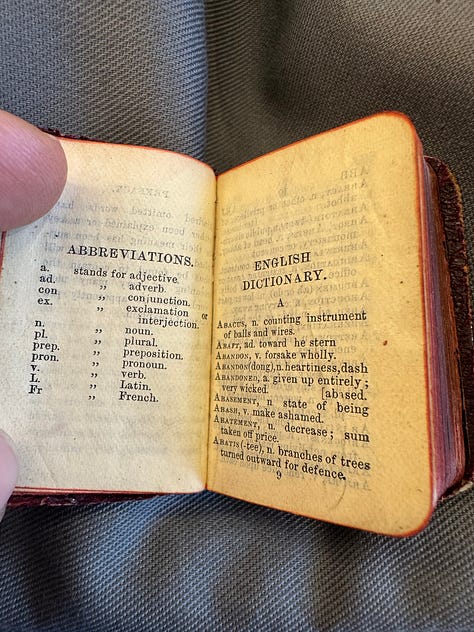 ABBREVIATIONS.
a. stands for adjective.
ad. ,, adverb.
con ,, conjunction.
ex. ,, exclamation or
interjection.
n. ,, noun.
pl. ,, plural.
prep. ,, preposition.
pron. ,, pronoun.
v. ,, verb.
L. ,, Latin.
Fr ,, French.
ENGLISH
DICTIONARY.
A
ABACUS, n. counting instrument
of balls and wires.
ABAFT, ad. toward he stern
ABANDON, v. forsake wholly.
ABANDON(dong),n. heartiness,dash
ABANDONED, a. given up entirely;
very wicked. [abased.
ABASEMENT, n state of being
ABASH, v. make ashamed.
ABATEMENT, n. decrease; sum
taken off price.
ABATIS(-tee), n. branches of trees
turned outward for defence.
9